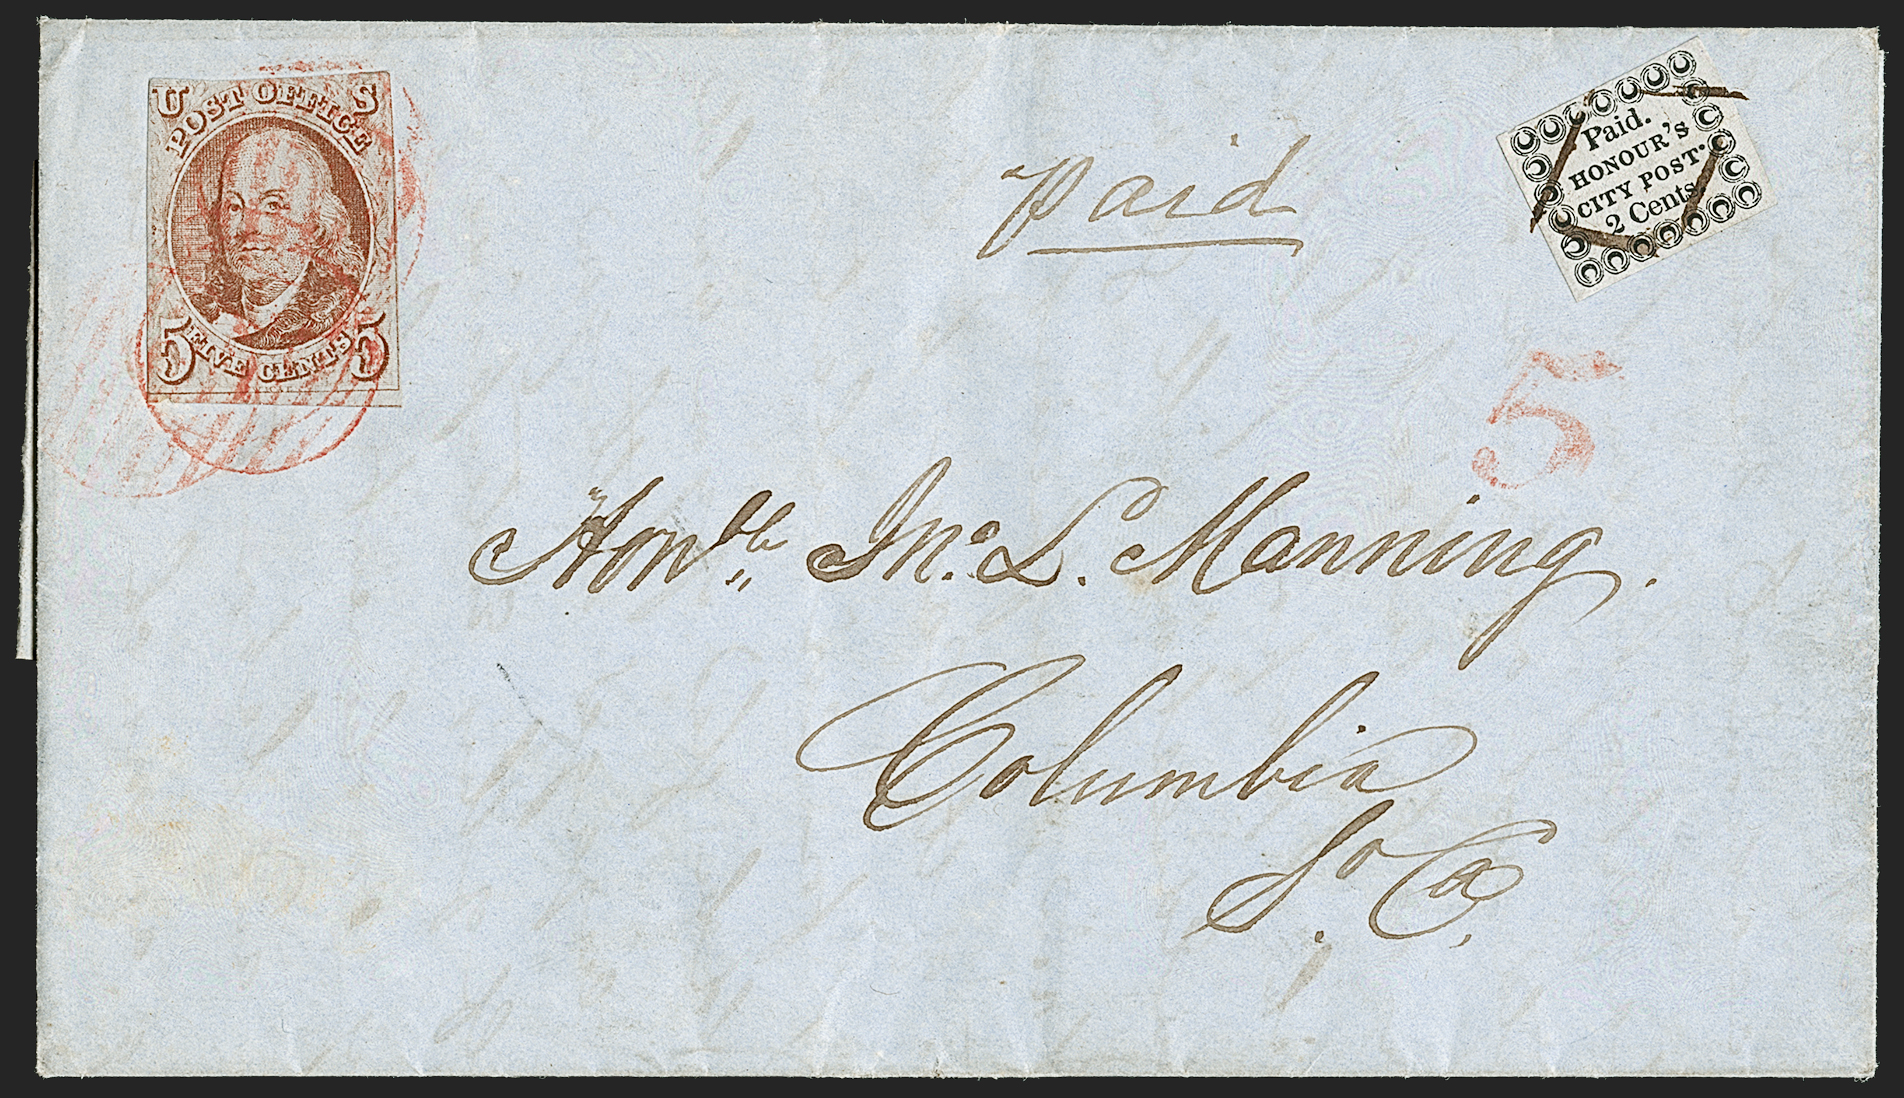 U S
POST OFFICE
5 FIVE CENTS 5
Paid
Paid.
HONOUR'S
CITY POST.
2 Cents
5
Honble Jno. L. Manning.
Columbia
So. Ca.